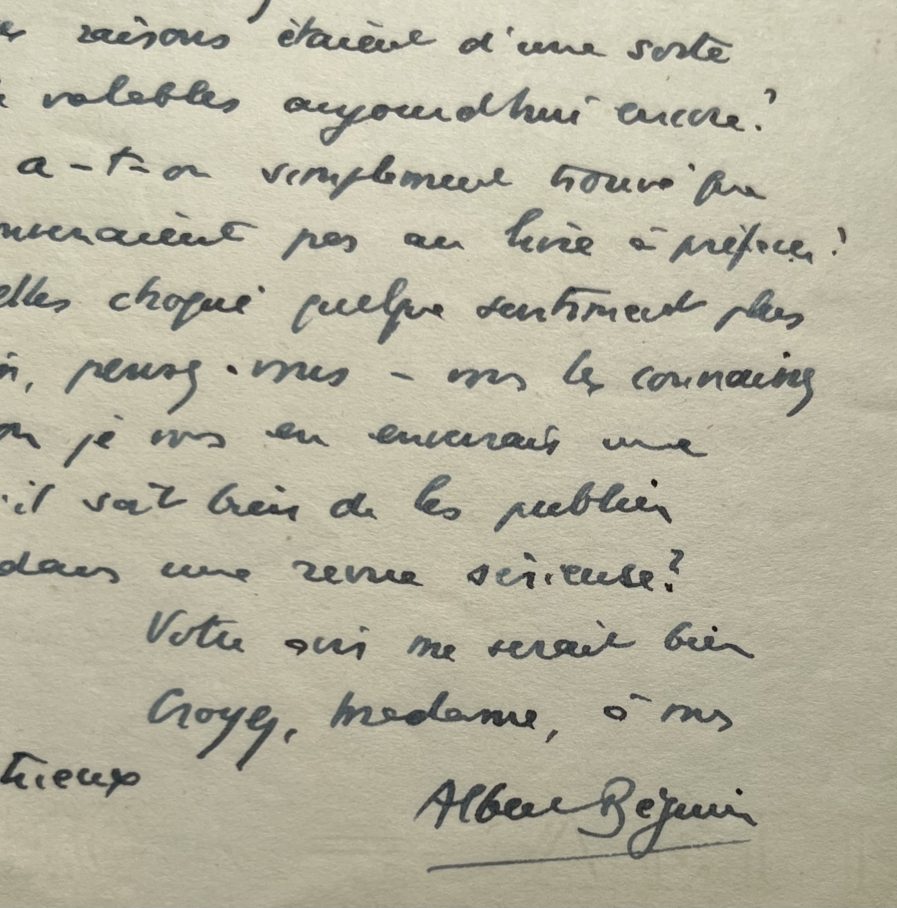 raisons étaient d'une sorte
valables aujourd'hui encore?
a-t-on simplement trouvé que
naient pas au livre à préfacer?
elles choqué quelque sentiment plus
pensez-vous - vous les connaissez
je vous en enverrais une
il soit bien de les publier
dans une revue sérieuse?
Votre avis me serait bien
Croyez, Madame, à mes
Albert Béguin